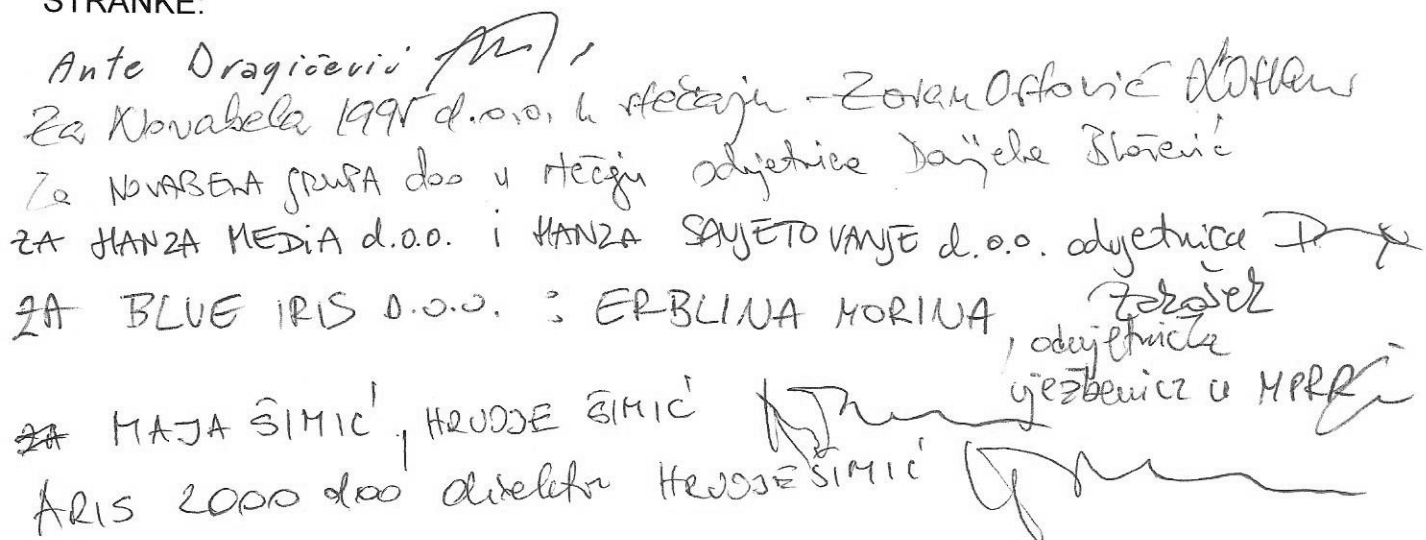 STRANKE:
Ante Dragičević
Za Novabela 1991 d.o.o. u stečaju - Zoran Ostović
Za NOVABELA GRUPA doo u stečaju odvjetnica Danijela Blažević
ZA HANZA MEDIA d.o.o. i HANZA SAVJETOVANJE d.o.o. odvjetnica
ZA BLUE IRIS D.O.O. : ERBLINA MORINA
, odvjetnička
vježbenica u MPRR
ZA MAJA ŠIMIĆ, HRVOJE ŠIMIĆ
ARIS 2000 doo direktor HRVOJE ŠIMIĆ